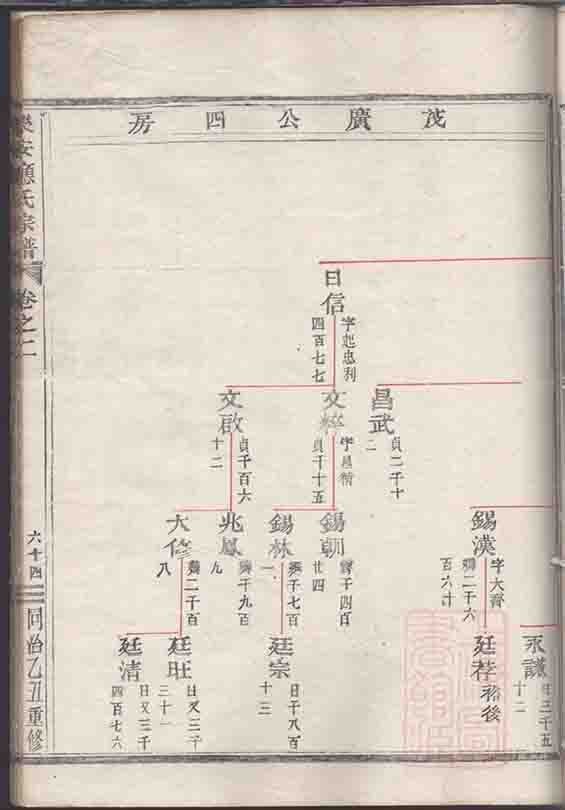 茂廣公四房
日信
字起忠利
四百七七
昌武
貞二千十
二
文粹
字
貞千十五
文啟
貞千百六
十二
錫漢
字大齊
百六十
錫朝
千四百
廿四
錫林
千七百
一
兆鳳
千九百
九
大修
二千百
八
永謙
三千五
十二
廷
後
廷宗
日千八百
十三
廷旺
日又三千
三十一
廷清
日又三千
四百七六
樂安應氏宗譜
卷之二
六十四
同治乙丑重修